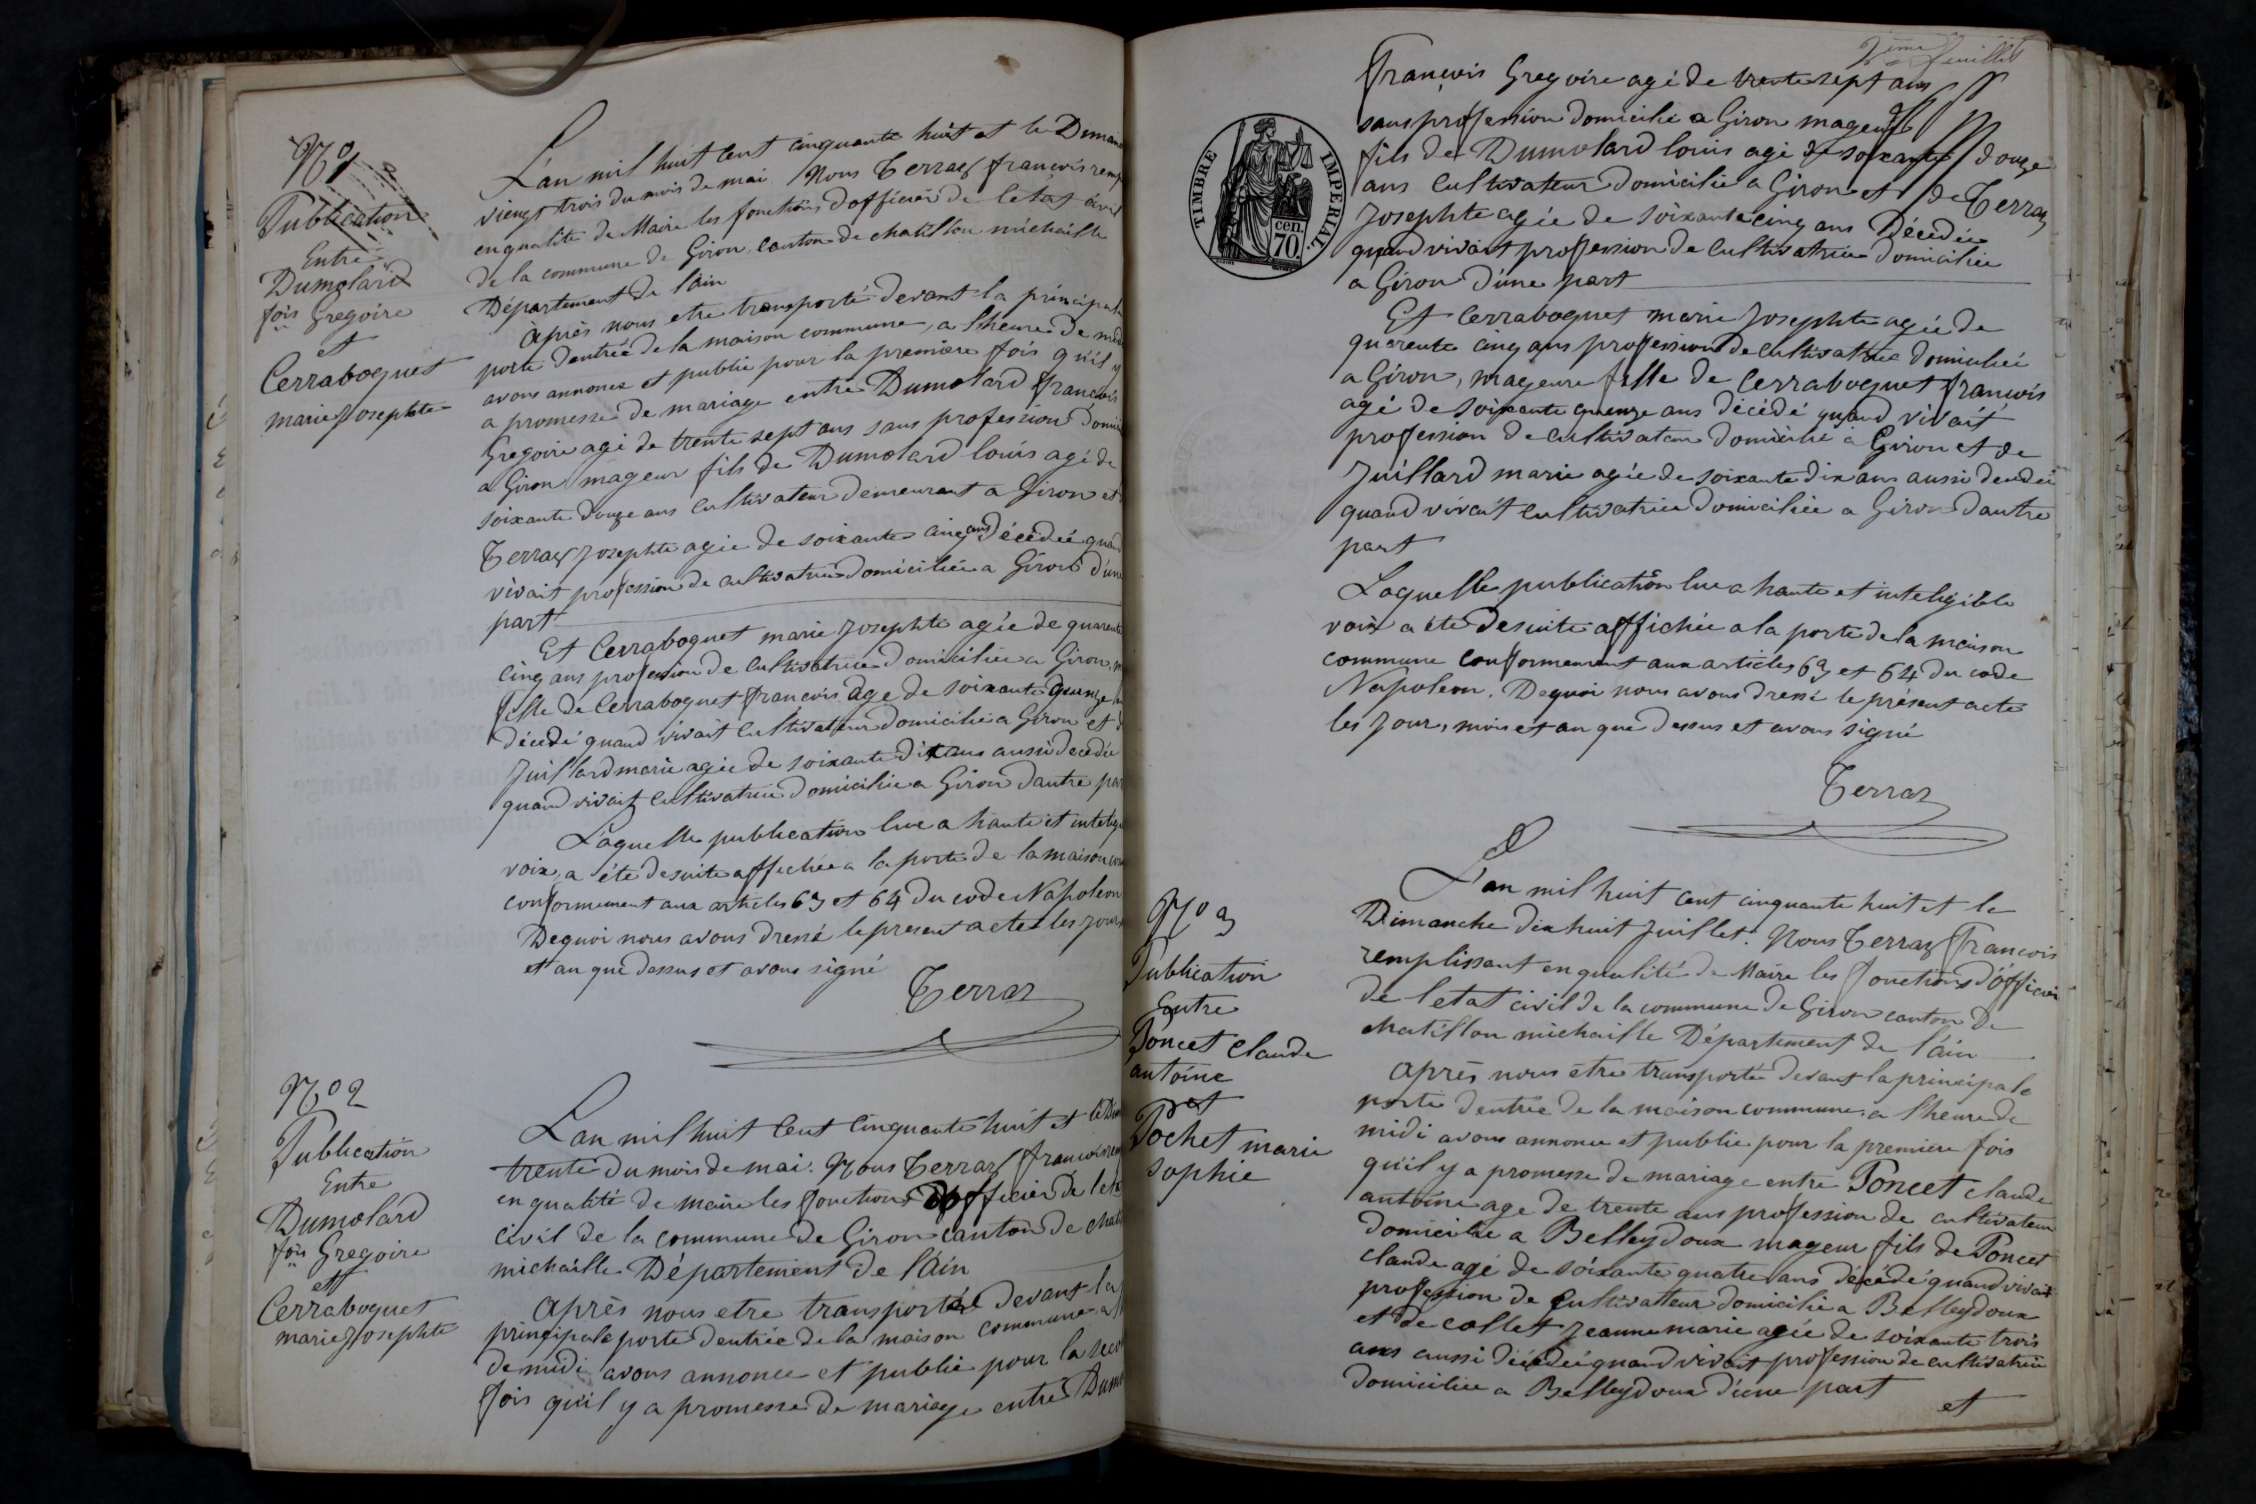 N° 1
Publication
Entre
Dumolard
fois Gregoire
et
Cerraboquet
marie Josephte
L'an mil huit cent cinquante huit et le Diman
viengt trois du mois de mai. Nous Terraz francois remp
en qualité de Maire les fonctions d'officier de l'etat civil
de la commune de Giron canton de chatillon michaille
Département de l'ain
Après nous etre transporté devant la principale
porte d'entrée de la maison commune, a l'heure de midi
avons annoncé et publié pour la première fois qu'il y
a promesse de mariage entre Dumolard francois
Gregoire agé de trente sept ans sans profession domici
a Giron mageur fils de Dumolard louis agé de
soixante douze ans cultivateur demeurant a Giron et
Terraz Josephte agée de soixante cinq ans décédée quand
vivait profession de cultivatrice domiciliée a Giron d'une
part
Et Cerraboquet marie Josephte agée de quarente
cinq ans profession de cultivatrice domiciliée a Giron, m
fille de Cerraboquet françois agé de soixante quinze
décédé quand vivait cultivateur domicilié a Giron et d
Juillard marie agée de soixante dix ans aussi decedée
quand vivait cultivatrice domiciliée a Giron d'autre par
Laquelle publication lue a haute et intelig
voix, a été desuite affichée a la porte de la maison com
conformement aux articles 63 et 64 du code Napoleon
Dequoi nous avons dressé le present acte les jours
et an que dessus et avons signé
Terraz
N° 2
Publication
Entre
Dumolard
fois Gregoire
et
Cerraboquet
marie Josephte
L'an mil huit cent cinquante huit et le Dim
trente du mois de mai. Nous Terraz francois rem
en qualité de maire les fonctions d'officier de l'eta
civil de la commune de Giron canton de chati
michaille Département de l'Ain
Après nous etre transporté devant la
principale porte d'entrée de la maison commune a l
de midi avons annoncé et publié pour la seco
fois qu'il y a promesse de mariage entre Dumo
2ème feuillet
TIMBRE IMPÉRIAL.
cen.
70.
françois Gregoire agé de trente sept ans
sans profession domicilié a Giron mageur
fils de Dumolard louis agé de soixante douze
ans cultivateur domicilié a Giron et de Terraz
Josephte agée de soixante cinq ans Décédée
quand vivait profession de cultivatrice domiciliée
a Giron d'une part
Et Cerraboquet marie Josephte agée de
quarente cinq ans profession de cultivatrice domiciliée
a Giron, mageure fille de Cerraboquet françois
agé de soixante quenze ans décédé quand vivait
profession de cultivateur domicilié a Giron et de
Juillard marie agée de soixante dix ans aussi decedée
quand vivait cultivatrice domiciliée a Giron d'autre
part
Laquelle publication lue a haute et inteligible
voix a été desuite affichée a la porte de la maison
commune conformement aux articles 63 et 64 du code
Napoleon. Dequoi nous avons dressé le présent acte
les jour, mois et an que dessus et avons signé
Terraz
N° 3
Publication
Entre
Poncet claude
antoine
et
Pochet marie
sophie
L'an mil huit cent cinquante huit et le
Dimanche dix huit juillet. Nous Terraz françois
remplissant en qualité de Maire les fonctions d'officier
de l'etat civil de la commune de Giron canton de
chatillon michaille Département de l'ain
Après nous etre transporté devant la principale
porte d'entrée de la maison commune a l'heure de
midi avons annoncé et publié pour la premiere fois
qu'il y a promesse de mariage entre Poncet claude
antoine agé de trente ans profession de cultivateur
domicilié a Belleydoux mageur fils de Poncet
claude agé de soixante quatre ans décédé quand vivait
profession de cultivatteur domicilié a Belleydoux
et de collet jeanne marie agée de soixante trois
ans aussi décédée quand vivait profession de cultivatrice
domiciliée a Belleydoux d'une part
et